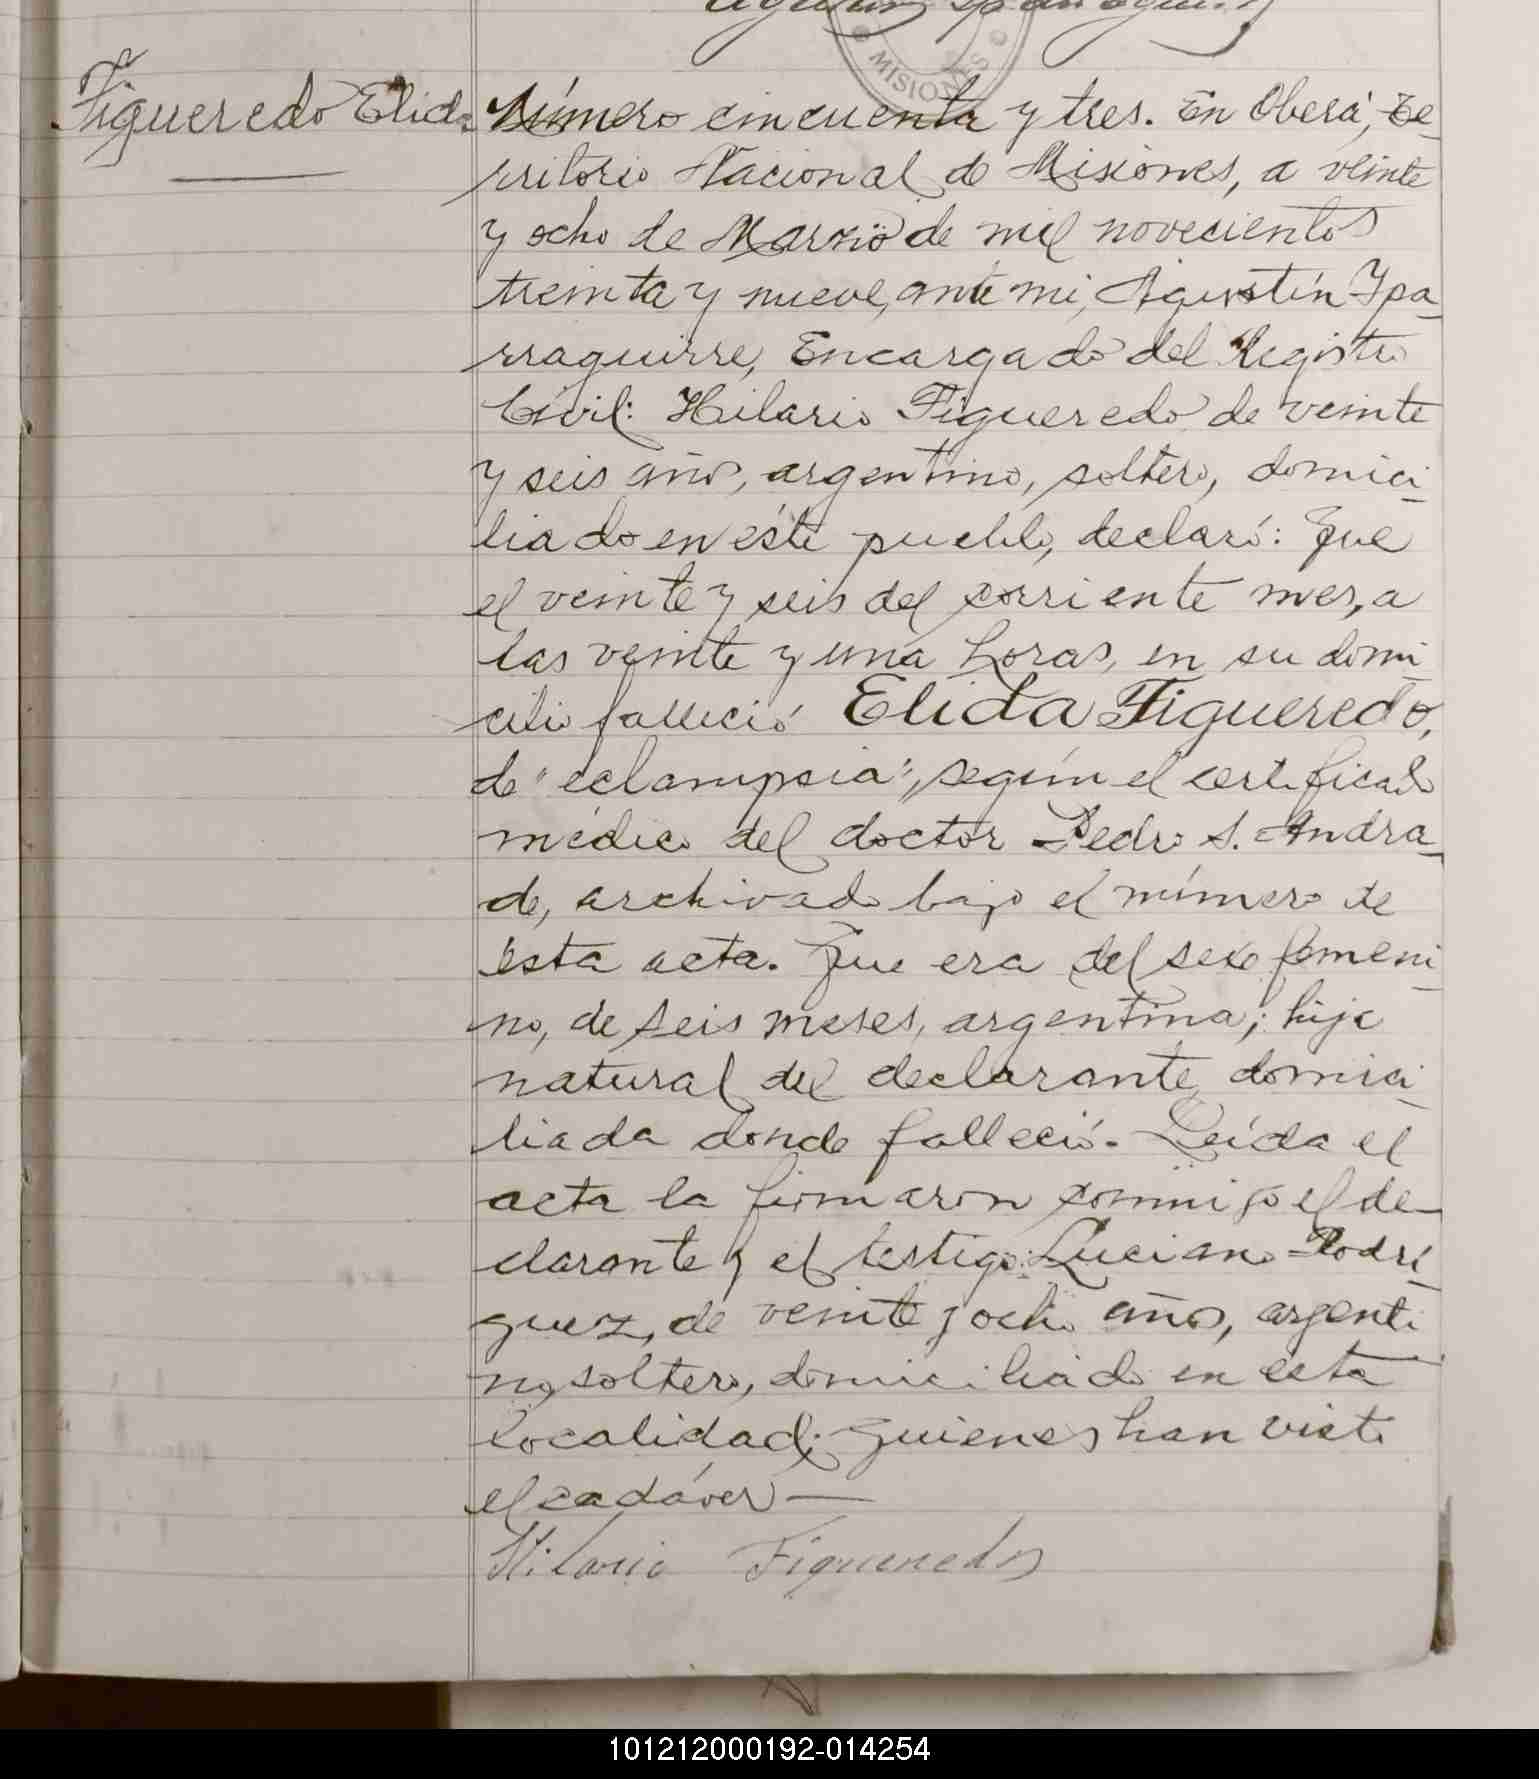 MISIONES
Figueredo Elida
Número cincuenta y tres. En Oberá, Te-
rritorio Nacional de Misiones, a veinte
y ocho de Marzo de mil novecientos
treinta y nueve, ante mi, Agustín Ypa-
rraguirre, Encargado del Registro
Civil: Hilario Figueredo de veinte
y seis años, argentino, soltero, domici-
liado en éste pueblo, declaró: Que
el veinte y seis del corriente mes, a
las veinte y una horas, en su domi-
cilio falleció Elida Figueredo,
de "eclampsia", según el certificado
médico del doctor Pedro S. Andra-
de, archivado bajo el número de
esta acta. Que era del sexo femeni-
no, de seis meses, argentina; hija
natural del declarante, domici-
liada donde falleció. Leída el
acta la firmaron conmigo el de-
clarante y el testigo: Luciano Rodrí-
guez, de veinte y ocho años, argenti-
no, soltero, domiciliado en esta
localidad; quienes han visto
el cadáver—
Hilario Figueredo
101212000192-014254